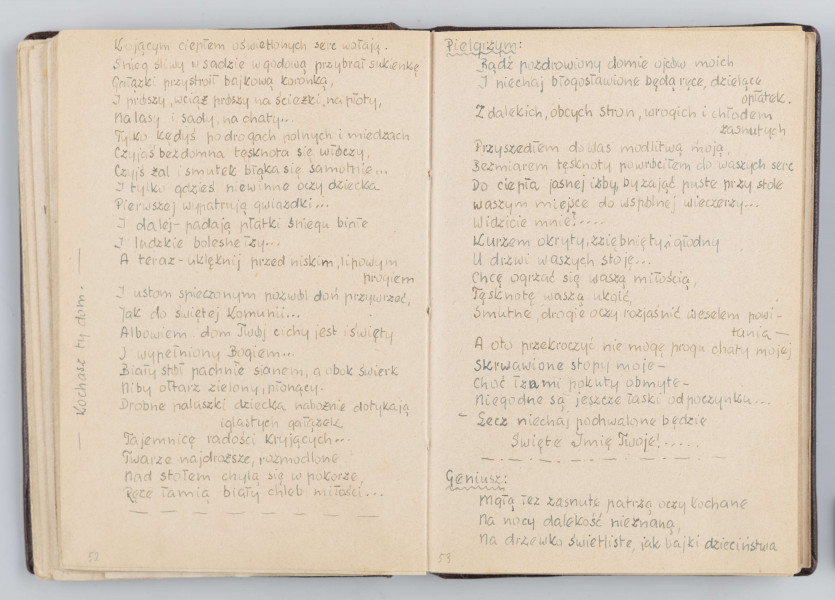 Kującym ciepłem oświetlonych serc wołają.
Śnieg śliwy w sadzie w godową przybrał sukienkę
Gałązki przystroił bajkową koronką,
I prószy, wciąż prószy na ścieżki, na płoty,
Na lasy i sady, na chaty...
Tylko kędyś po drogach polnych i miedzach
Czyjaś bezdomna tęsknota się włóczy,
Czyjś żal i smutek błąka się samotnie...
I tylko gdzieś niewinne oczy dziecka
Pierwszej wypatrują gwiazdki...
I dalej - padają płatki śniegu białe
I ludzkie bolesne łzy...
A teraz - uklęknij przed niskim, lipowym
progiem
I ustom spieczonym pozwól doń przywrzeć,
Jak do świętej Komunii...
Albowiem dom Twój cichy jest i święty
I wypełniony Bogiem...
Biały stół pachnie sianem, a obok świerk
Niby ołtarz zielony, płonący.
Drobne paluszki dziecka nabożnie dotykają
iglastych gałązek,
Tajemnicę radości kryjących...
Twarze najdroższe, rozmodlone
Nad stołem chylą się w pokorze,
Ręce łamią biały chleb miłości...
— Kochasz ty dom. —
52
Pielgrzym:
Bądź pozdrowiony domie ojców moich
I niechaj błogosławione będą ręce, dzielące
opłatek.
Z dalekich, obcych stron, wrogich i chłodem
zasnutych
Przyszedłem do Was modlitwą moją,
Bezmiarem tęsknoty powróciłem do waszych serc
Do ciepła jasnej izby, by zająć puste przy stole
waszym miejsce do wspólnej wieczerzy...
Widzicie mnie?....
Kurzem okryty, zziębnięty i głodny
U drzwi waszych stoję...
Chcę ogrzać się waszą miłością,
Tęsknotę waszą ukoić,
Smutne, drogie oczy rozjaśnić weselem powi-
tania —
A oto przekroczyć nie mogę progu chaty mojej
Skrwawione stopy moje –
Choć łzami pokuty obmyte –
Niegodne są jeszcze łaski odpoczynku...
– Lecz niechaj pochwalone będzie
Święte Imię Twoje!.....
Geniusz:
Mgłą łez zasnute patrzą oczy kochane
Na nocy dalekość nieznaną,
Na drzewko świetliste, jak bajki dzieciństwa
53